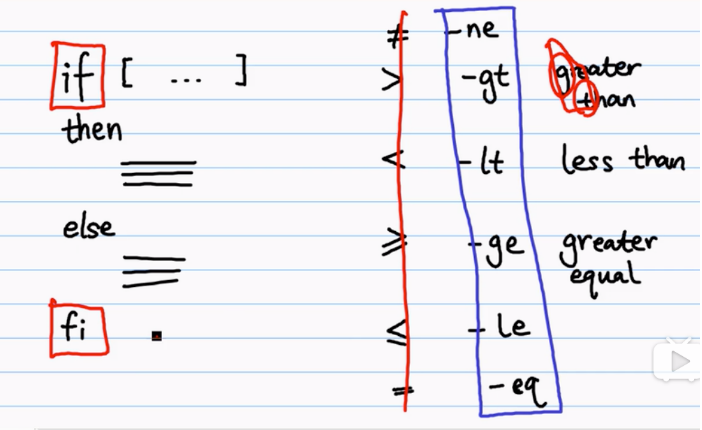 if [ ... ]
then
else
fi
≠ -ne
> -gt greater than
< -lt less than
≥ -ge greater equal
≤ -le
= -eq